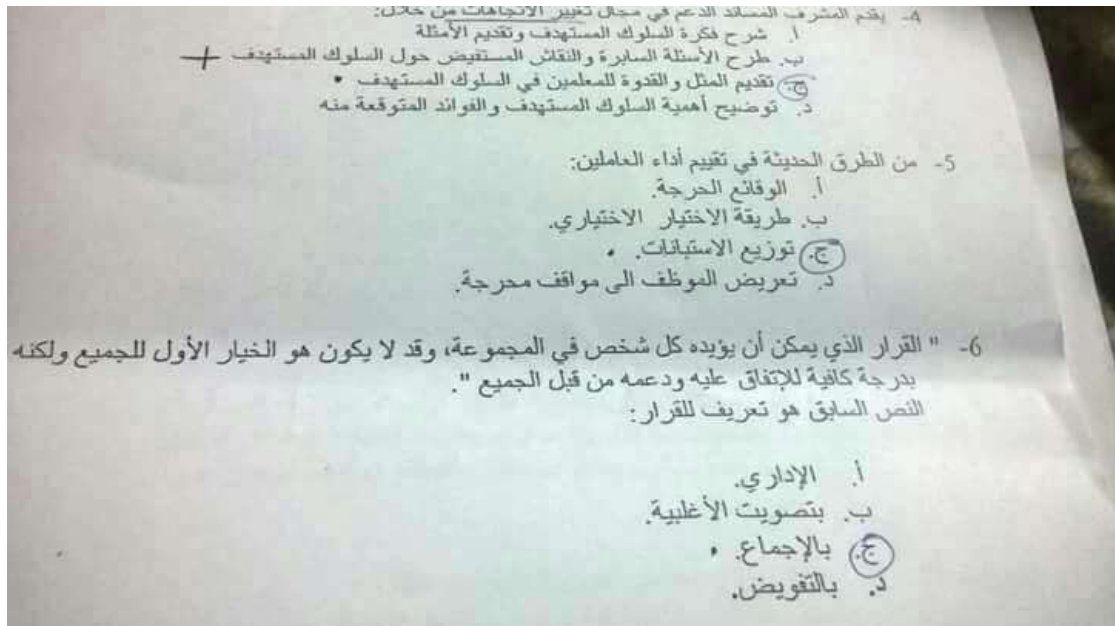 4- يقدم المشرف المساند الدعم في مجال تغيير الاتجاهات من خلال:
أ. شرح فكرة السلوك المستهدف وتقديم الأمثلة
ب. طرح الأسئلة السابرة والنقاش المستفيض حول السلوك المستهدف
ج. تقديم المثل والقدوة للمعلمين في السلوك المستهدف
د. توضيح أهمية السلوك المستهدف والفوائد المتوقعة منه
5- من الطرق الحديثة في تقييم أداء العاملين:
أ. الوقائع الحرجة.
ب. طريقة الاختيار الاختياري.
ج. توزيع الاستبانات.
د. تعريض الموظف الى مواقف محرجة.
6- " القرار الذي يمكن أن يؤيده كل شخص في المجموعة، وقد لا يكون هو الخيار الأول للجميع ولكنه
بدرجة كافية للإتفاق عليه ودعمه من قبل الجميع ".
النص السابق هو تعريف للقرار:
أ. الإداري.
ب. بتصويت الأغلبية.
ج. بالإجماع.
د. بالتفويض.